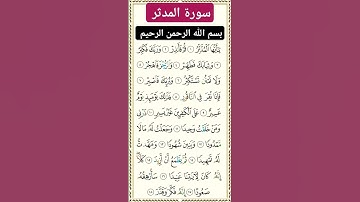 سورة المدثر
بسم الله الرحمن الرحيم
يَٰٓأَيُّهَا ٱلْمُدَّثِّرُ ١ قُمْ فَأَنذِرْ ٢ وَرَبَّكَ فَكَبِّرْ
٣ وَثِيَابَكَ فَطَهِّرْ ٤ وَٱلرُّجْزَ فَٱهْجُرْ ٥
وَلَا تَمْنُن تَسْتَكْثِرُ ٦ وَلِرَبِّكَ فَٱصْبِرْ ٧
فَإِذَا نُقِرَ فِى ٱلنَّاقُورِ ٨ فَذَٰلِكَ يَوْمَئِذٍ يَوْمٌ
عَسِيرٌ ٩ عَلَى ٱلْكَٰفِرِينَ غَيْرُ يَسِيرٍ ١٠ ذَرْنِى
وَمَنْ خَلَقْتُ وَحِيدًا ١١ وَجَعَلْتُ لَهُۥ مَالًا
مَّمْدُودًا ١٢ وَبَنِينَ شُهُودًا ١٣ وَمَهَّدتُّ
لَهُۥ تَمْهِيدًا ١٤ ثُمَّ يَطْمَعُ أَنْ أَزِيدَ ١٥ كَلَّآ
إِنَّهُۥ كَانَ لِءَايَٰتِنَا عَنِيدًا ١٦ سَأُرْهِقُهُۥ
صَعُودًا ١٧ إِنَّهُۥ فَكَّرَ وَقَدَّرَ ١٨